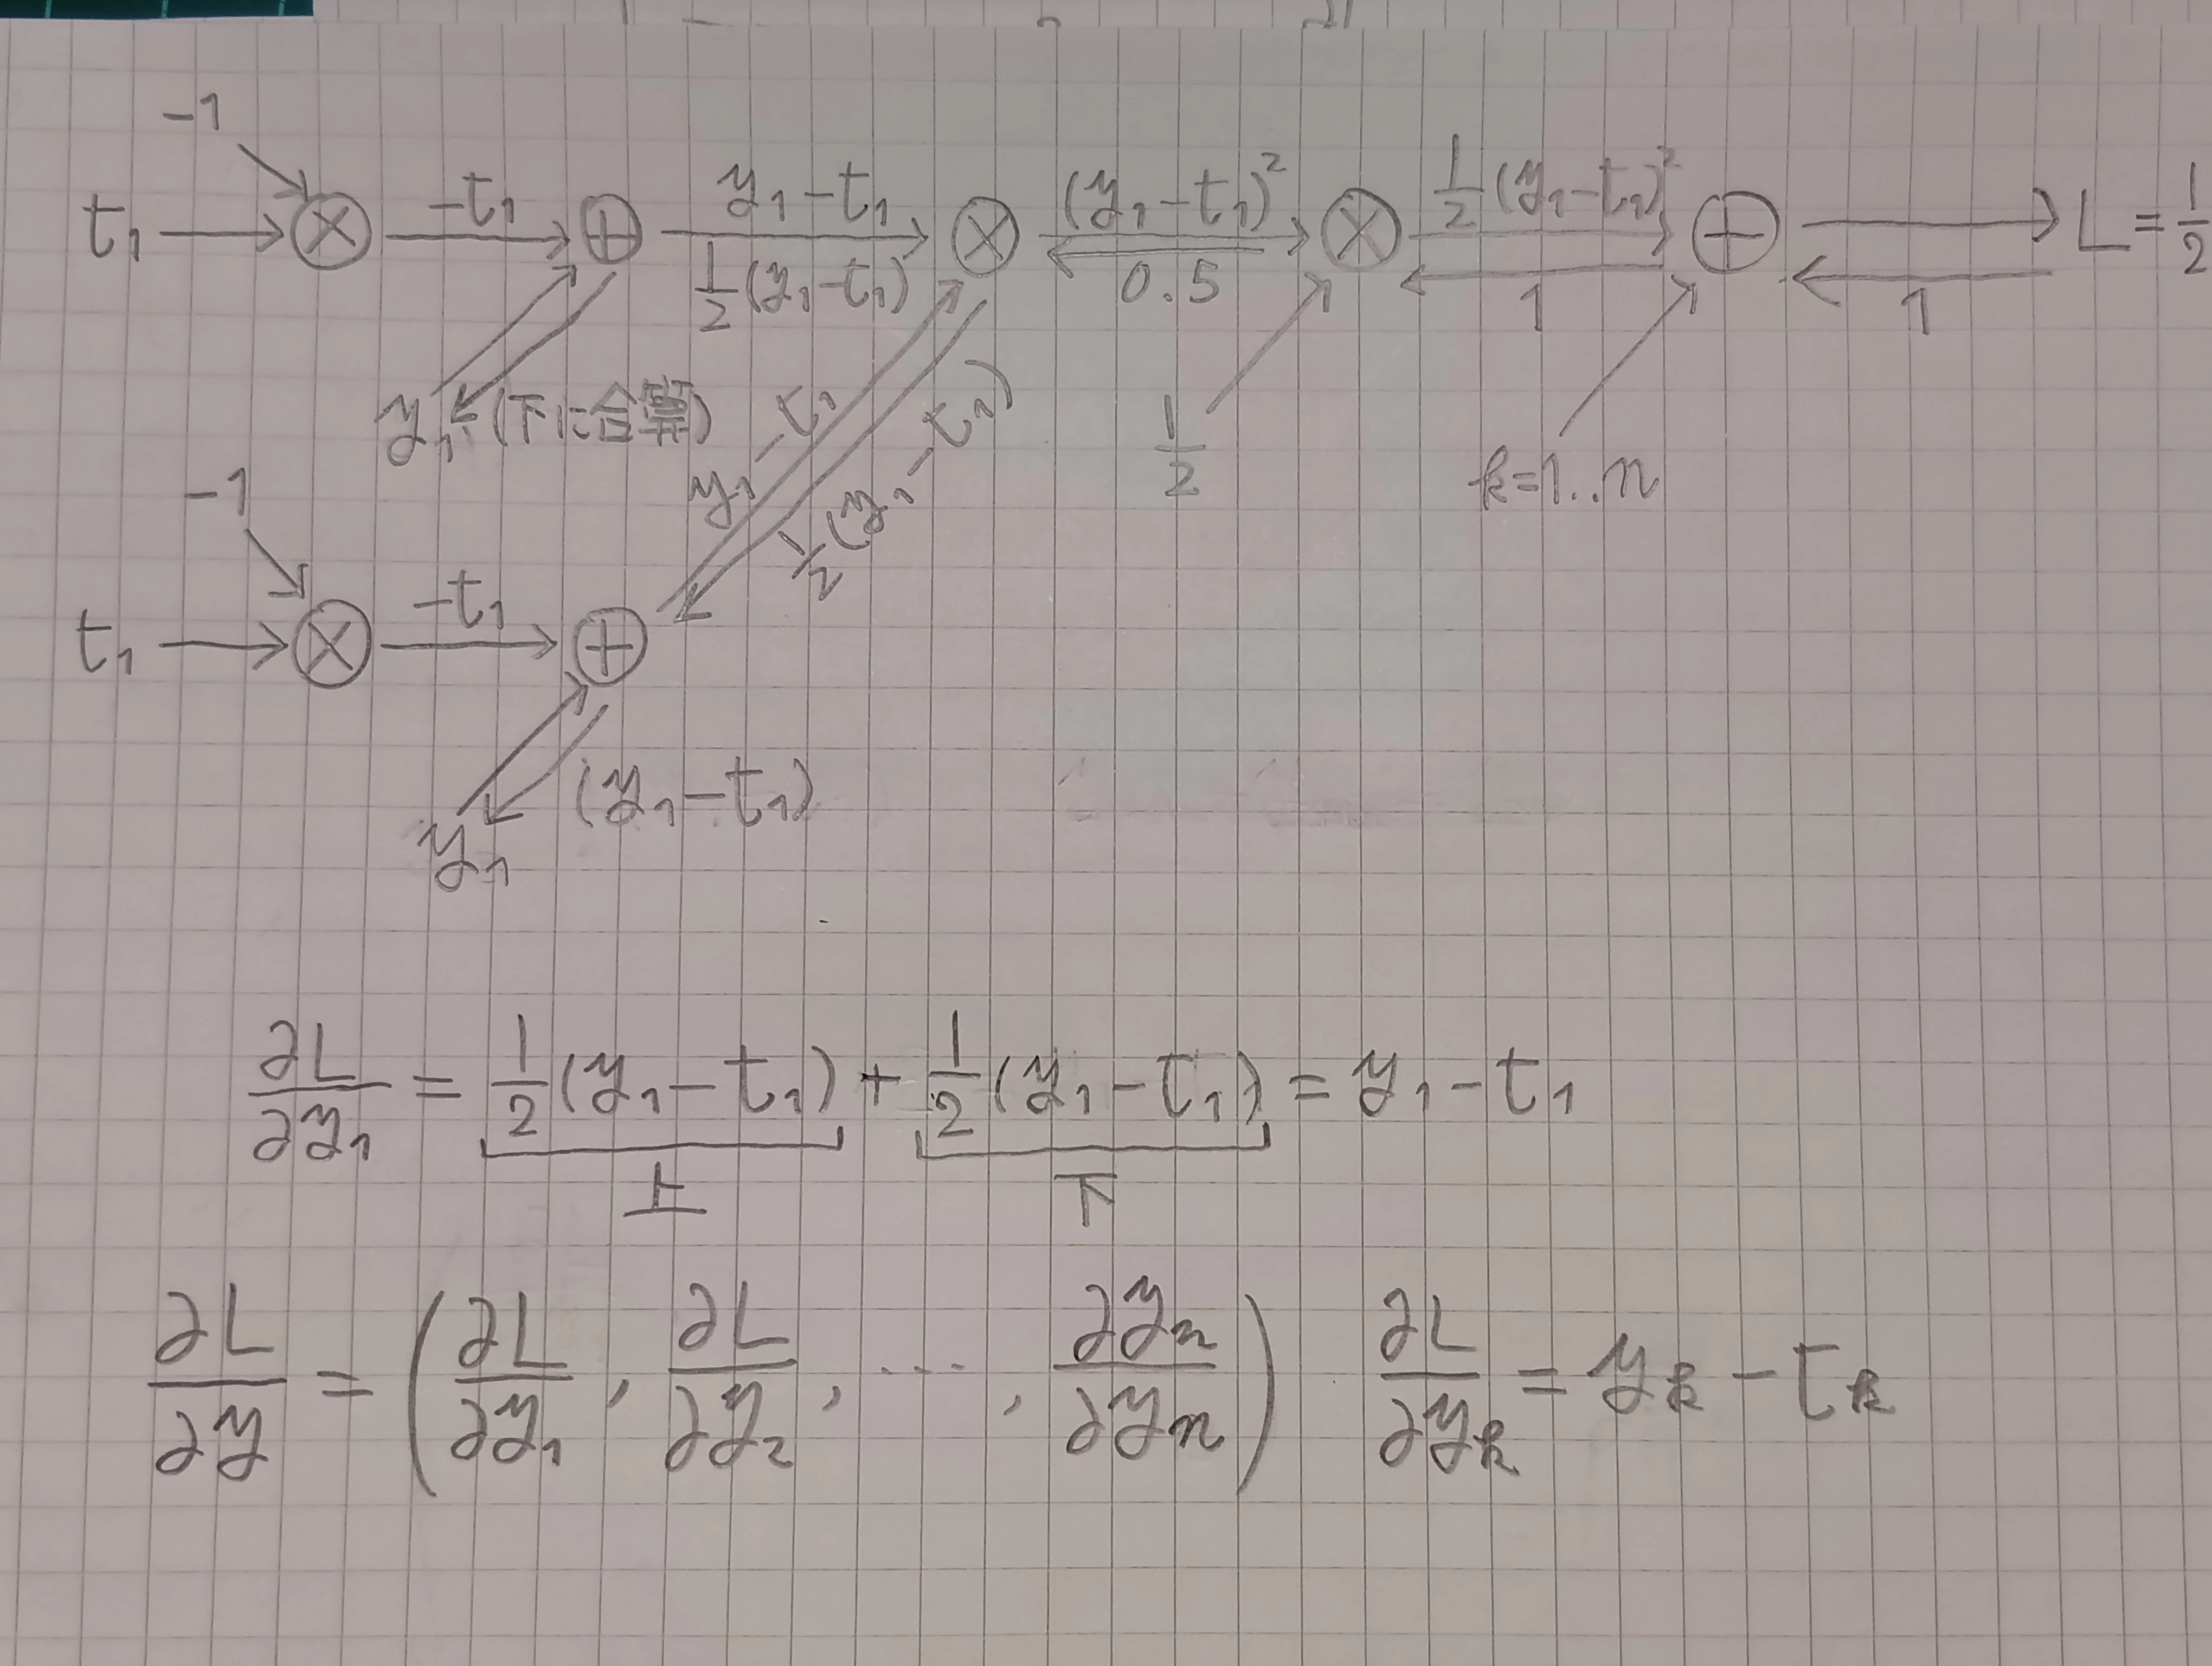 -1
t₁ → ⊗ -t₁ → ⊕ y₁-t₁ → ⊗ (y₁-t₁)² → ⊗ ½(y₁-t₁)² → ⊕ → L=½
½(y₁-t₁) ← 0.5 ← 1 ← 1
y₁ (下に合算) y₁-t₁ ½(y₁-t₁) ½ k=1..n
-1
t₁ → ⊗ -t₁ → ⊕
y₁ (y₁-t₁)
∂L/∂y₁ = ½(y₁-t₁) + ½(y₁-t₁) = y₁-t₁
上 下
∂L/∂y = (∂L/∂y₁, ∂L/∂y₂, ..., ∂yn/∂yn) ∂L/∂yk = yk-tk